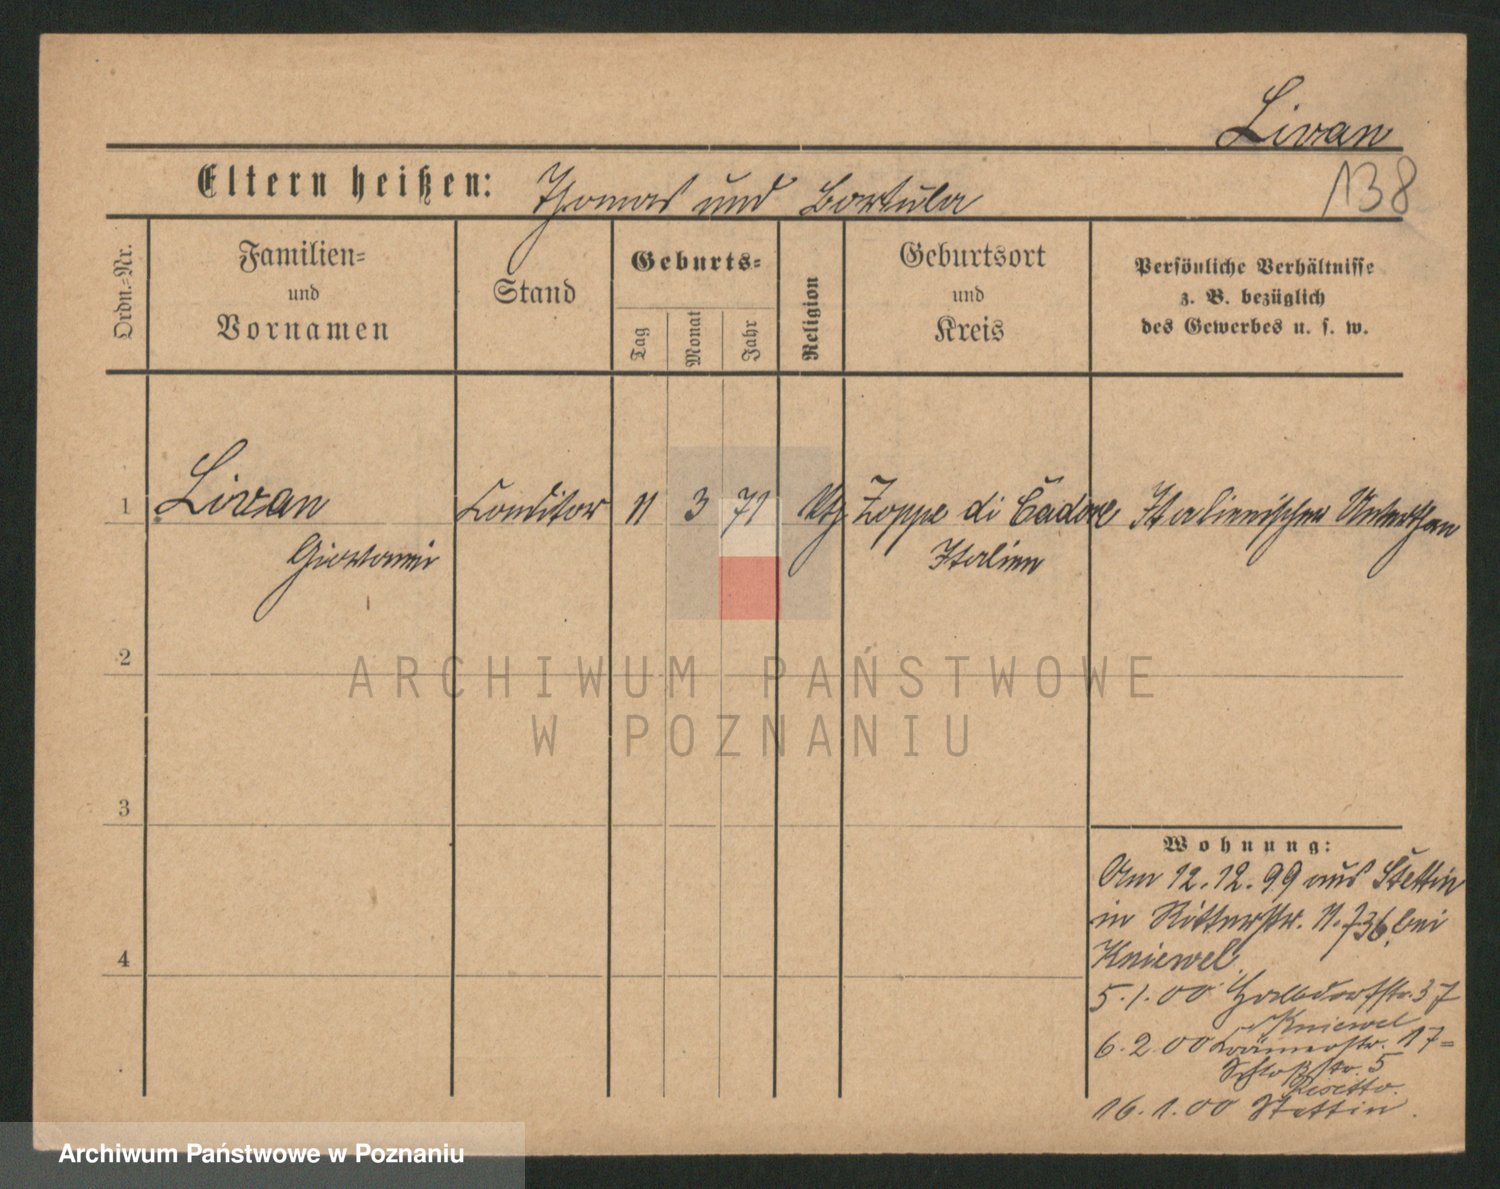 Livan
138
Eltern heißen: Thomas und Bortula
Ordn.-Nr.
Familien- und Vornamen
Stand
Geburts-
Tag
Monat
Jahr
Religion
Geburtsort und Kreis
Persönliche Verhältnisse
z. B. bezüglich
des Gewerbes u. s. w.
1 Livan Conditor 11 3 71 ktħ Zoppe di Cadore Italienischer Unterthan
Giovanni Italien
2
ARCHIWUM PAŃSTWOWE
W POZNANIU
3
4
Wohnung:
Am 12.12.99 aus Stettin
in Ritterstr. 11. 736, bei
Kniewel.
5.1.00 Halbdorfstr. 37
Kniewel
6.2.00 Krämerstr. 17=
Schloßstr. 5
16.1.00 Stettin.
Archiwum Państwowe w Poznaniu